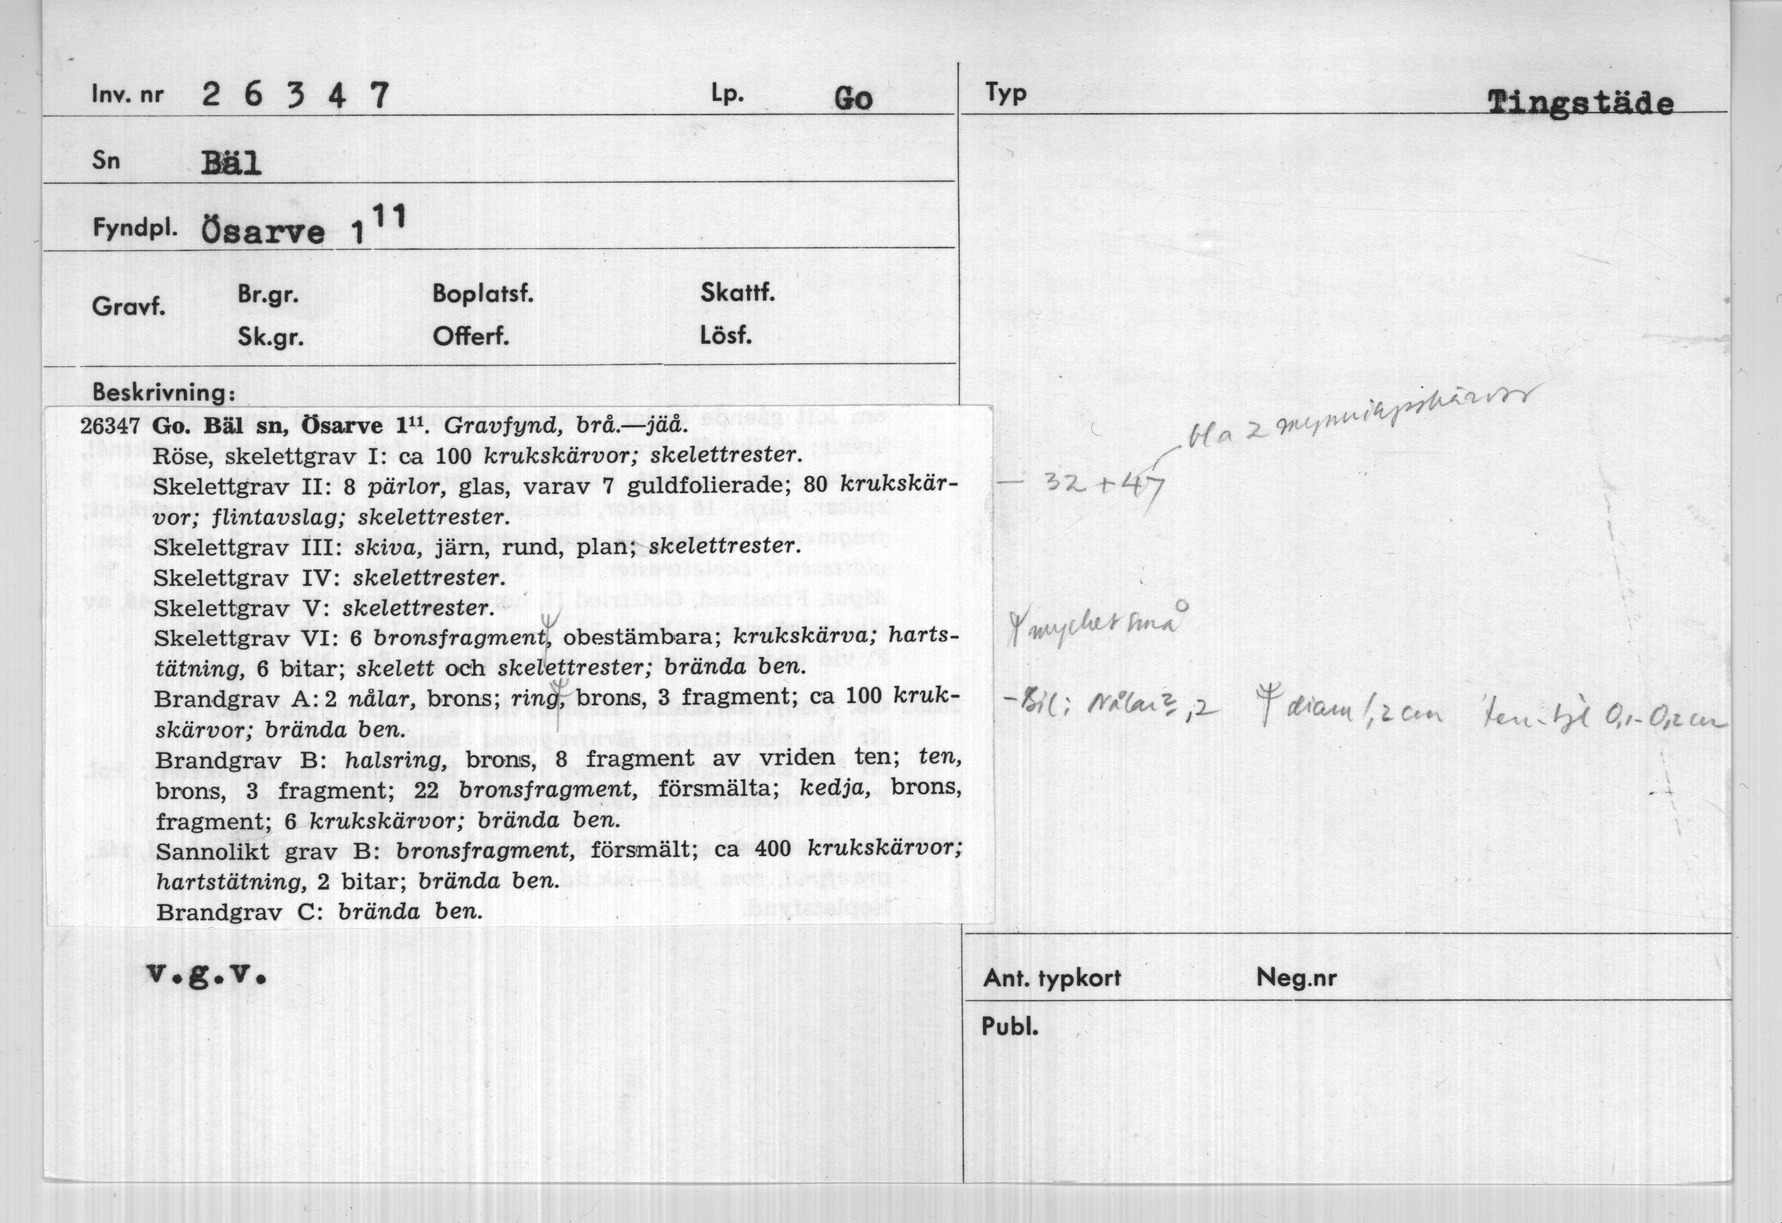 Inv. nr 2 6 3 4 7 Lp. Go
Typ Tingstäde
Sn Bäl
Fyndpl. Ösarve 1¹¹
Gravf. Br.gr. Boplatsf. Skattf.
Sk.gr. Offerf. Lösf.
Beskrivning:
26347 Go. Bäl sn, Ösarve 1¹¹. Gravfynd, brå.—jäå.
Röse, skelettgrav I: ca 100 krukskärvor; skelettrester.
Skelettgrav II: 8 pärlor, glas, varav 7 guldfolierade; 80 krukskär-
vor; flintavslag; skelettrester.
Skelettgrav III: skiva, järn, rund, plan; skelettrester.
Skelettgrav IV: skelettrester.
Skelettgrav V: skelettrester.
Skelettgrav VI: 6 bronsfragment, obestämbara; krukskärva; harts-
tätning, 6 bitar; skelett och skelettrester; brända ben.
Brandgrav A: 2 nålar, brons; ring, brons, 3 fragment; ca 100 kruk-
skärvor; brända ben.
Brandgrav B: halsring, brons, 8 fragment av vriden ten; ten,
brons, 3 fragment; 22 bronsfragment, försmälta; kedja, brons,
fragment; 6 krukskärvor; brända ben.
Sannolikt grav B: bronsfragment, försmält; ca 400 krukskärvor;
hartstätning, 2 bitar; brända ben.
Brandgrav C: brända ben.
v.g.v.
bla 2 mynningsskärvor
— 32 + 47
mycket små
- Bil: Nålar, 2 diam 1,2 cm ten-tjl 0,1-0,2 cm
Ant. typkort Neg.nr
Publ.